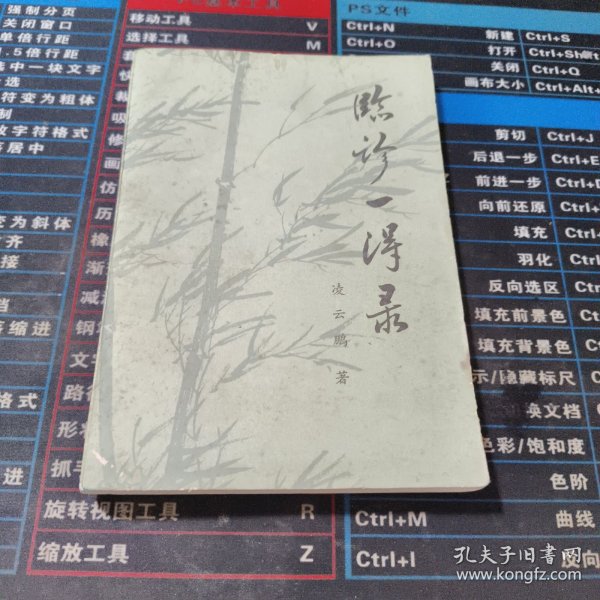 臨诊一得录
凌云鹏 著
强制分页
关闭窗口
单倍行距
.5倍行距
选中一块文字
符变为粗体
数字符格式
居中
变为斜体
齐
接
缩进
格式
进
移动工具 V
选择工具 M
旋转视图工具 R
缩放工具 Z
PS文件
Ctrl+N 新建 Ctrl+S
Ctrl+O 打开
关闭 Ctrl+Q
画布大小 Ctrl+Alt+
剪切 Ctrl+J
后退一步 Ctrl+E
前进一步
向前还原 Ctrl+
填充 Ctrl+
羽化
反向选区 Ctrl
填充前景色 Ctr
填充背景色 Ctr
示/隐藏标尺 Ctr
换文档
色彩/饱和度
色阶
Ctrl+M 曲线
Ctrl+I 反向
孔夫子旧书网
www.kongfz.com